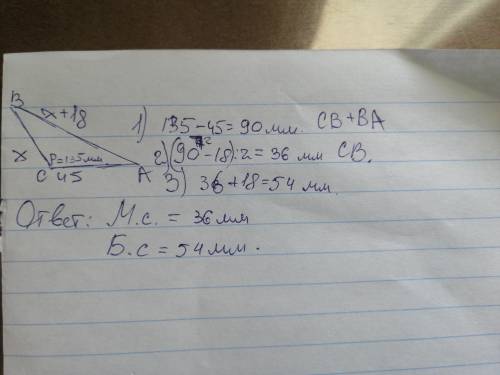 B
x+18
x
P=135мм
C 45 A
1) 135-45=90мм. CB+BA
72
2) (90-18):2=36 мм CB.
3) 36+18=54 мм.
Ответ: М.с. = 36мм
Б.с = 54мм.